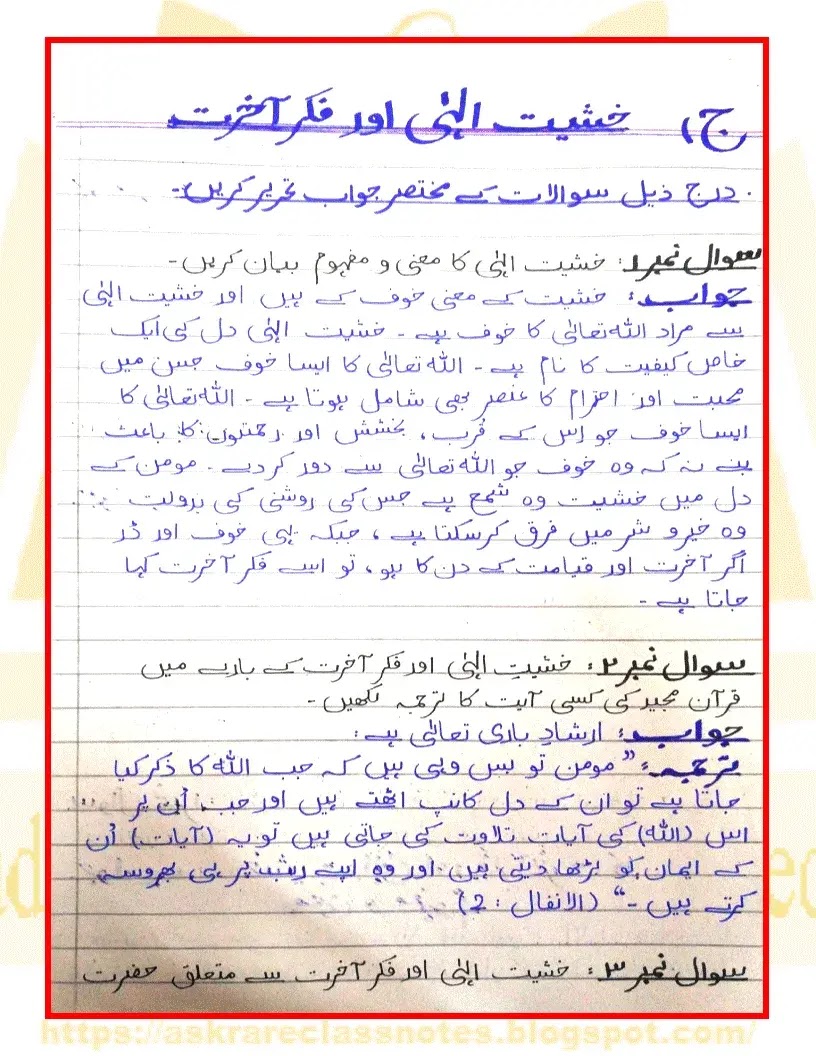 ج) خشیت الہٰی اور فکر آخرت
درج ذیل سوالات کے مختصر جواب تحریر کریں۔
سوال نمبر۱: خشیت الہٰی کا معنی و مفہوم بیان کریں۔
جواب: خشیت کے معنی خوف کے ہیں اور خشیت الہٰی
سے مراد اللہ تعالیٰ کا خوف ہے۔ خشیت الہٰی دل کی ایک
خاص کیفیت کا نام ہے۔ اللہ تعالیٰ کا ایسا خوف جس میں
محبت اور احترام کا عنصر بھی شامل ہوتا ہے۔ اللہ تعالیٰ کا
ایسا خوف جو اس کے قُرب، بخشش اور رحمتوں کا باعث
بنے نہ کہ وہ خوف جو اللہ تعالیٰ سے دور کر دے۔ مومن کے
دل میں خشیت وہ شمع ہے جس کی روشنی کی بدولت
وہ خیر و شر میں فرق کر سکتا ہے، جبکہ یہی خوف اور ڈر
اگر آخرت اور قیامت کے دن کا ہو، تو اسے فکر آخرت کہا
جاتا ہے۔
سوال نمبر ۲: خشیتِ الہٰی اور فکر آخرت کے بارے میں
قرآن مجید کی کسی آیت کا ترجمہ لکھیں۔
جواب: ارشادِ باری تعالیٰ ہے:
ترجمہ: "مومن تو بس وہی ہیں کہ جب اللہ کا ذکر کیا
جاتا ہے تو ان کے دل کانپ اٹھتے ہیں اور جب اُن پر
اس (اللہ) کی آیات تلاوت کی جاتی ہیں تو یہ (آیات) اُن
کے ایمان کو بڑھا دیتی ہیں اور وہ اپنے رب پر ہی بھروسہ
کرتے ہیں۔" (الانفال : 2)
سوال نمبر ۳: خشیت الہٰی اور فکر آخرت سے متعلق حضرت
https://askrareclassnotes.blogspot.com/